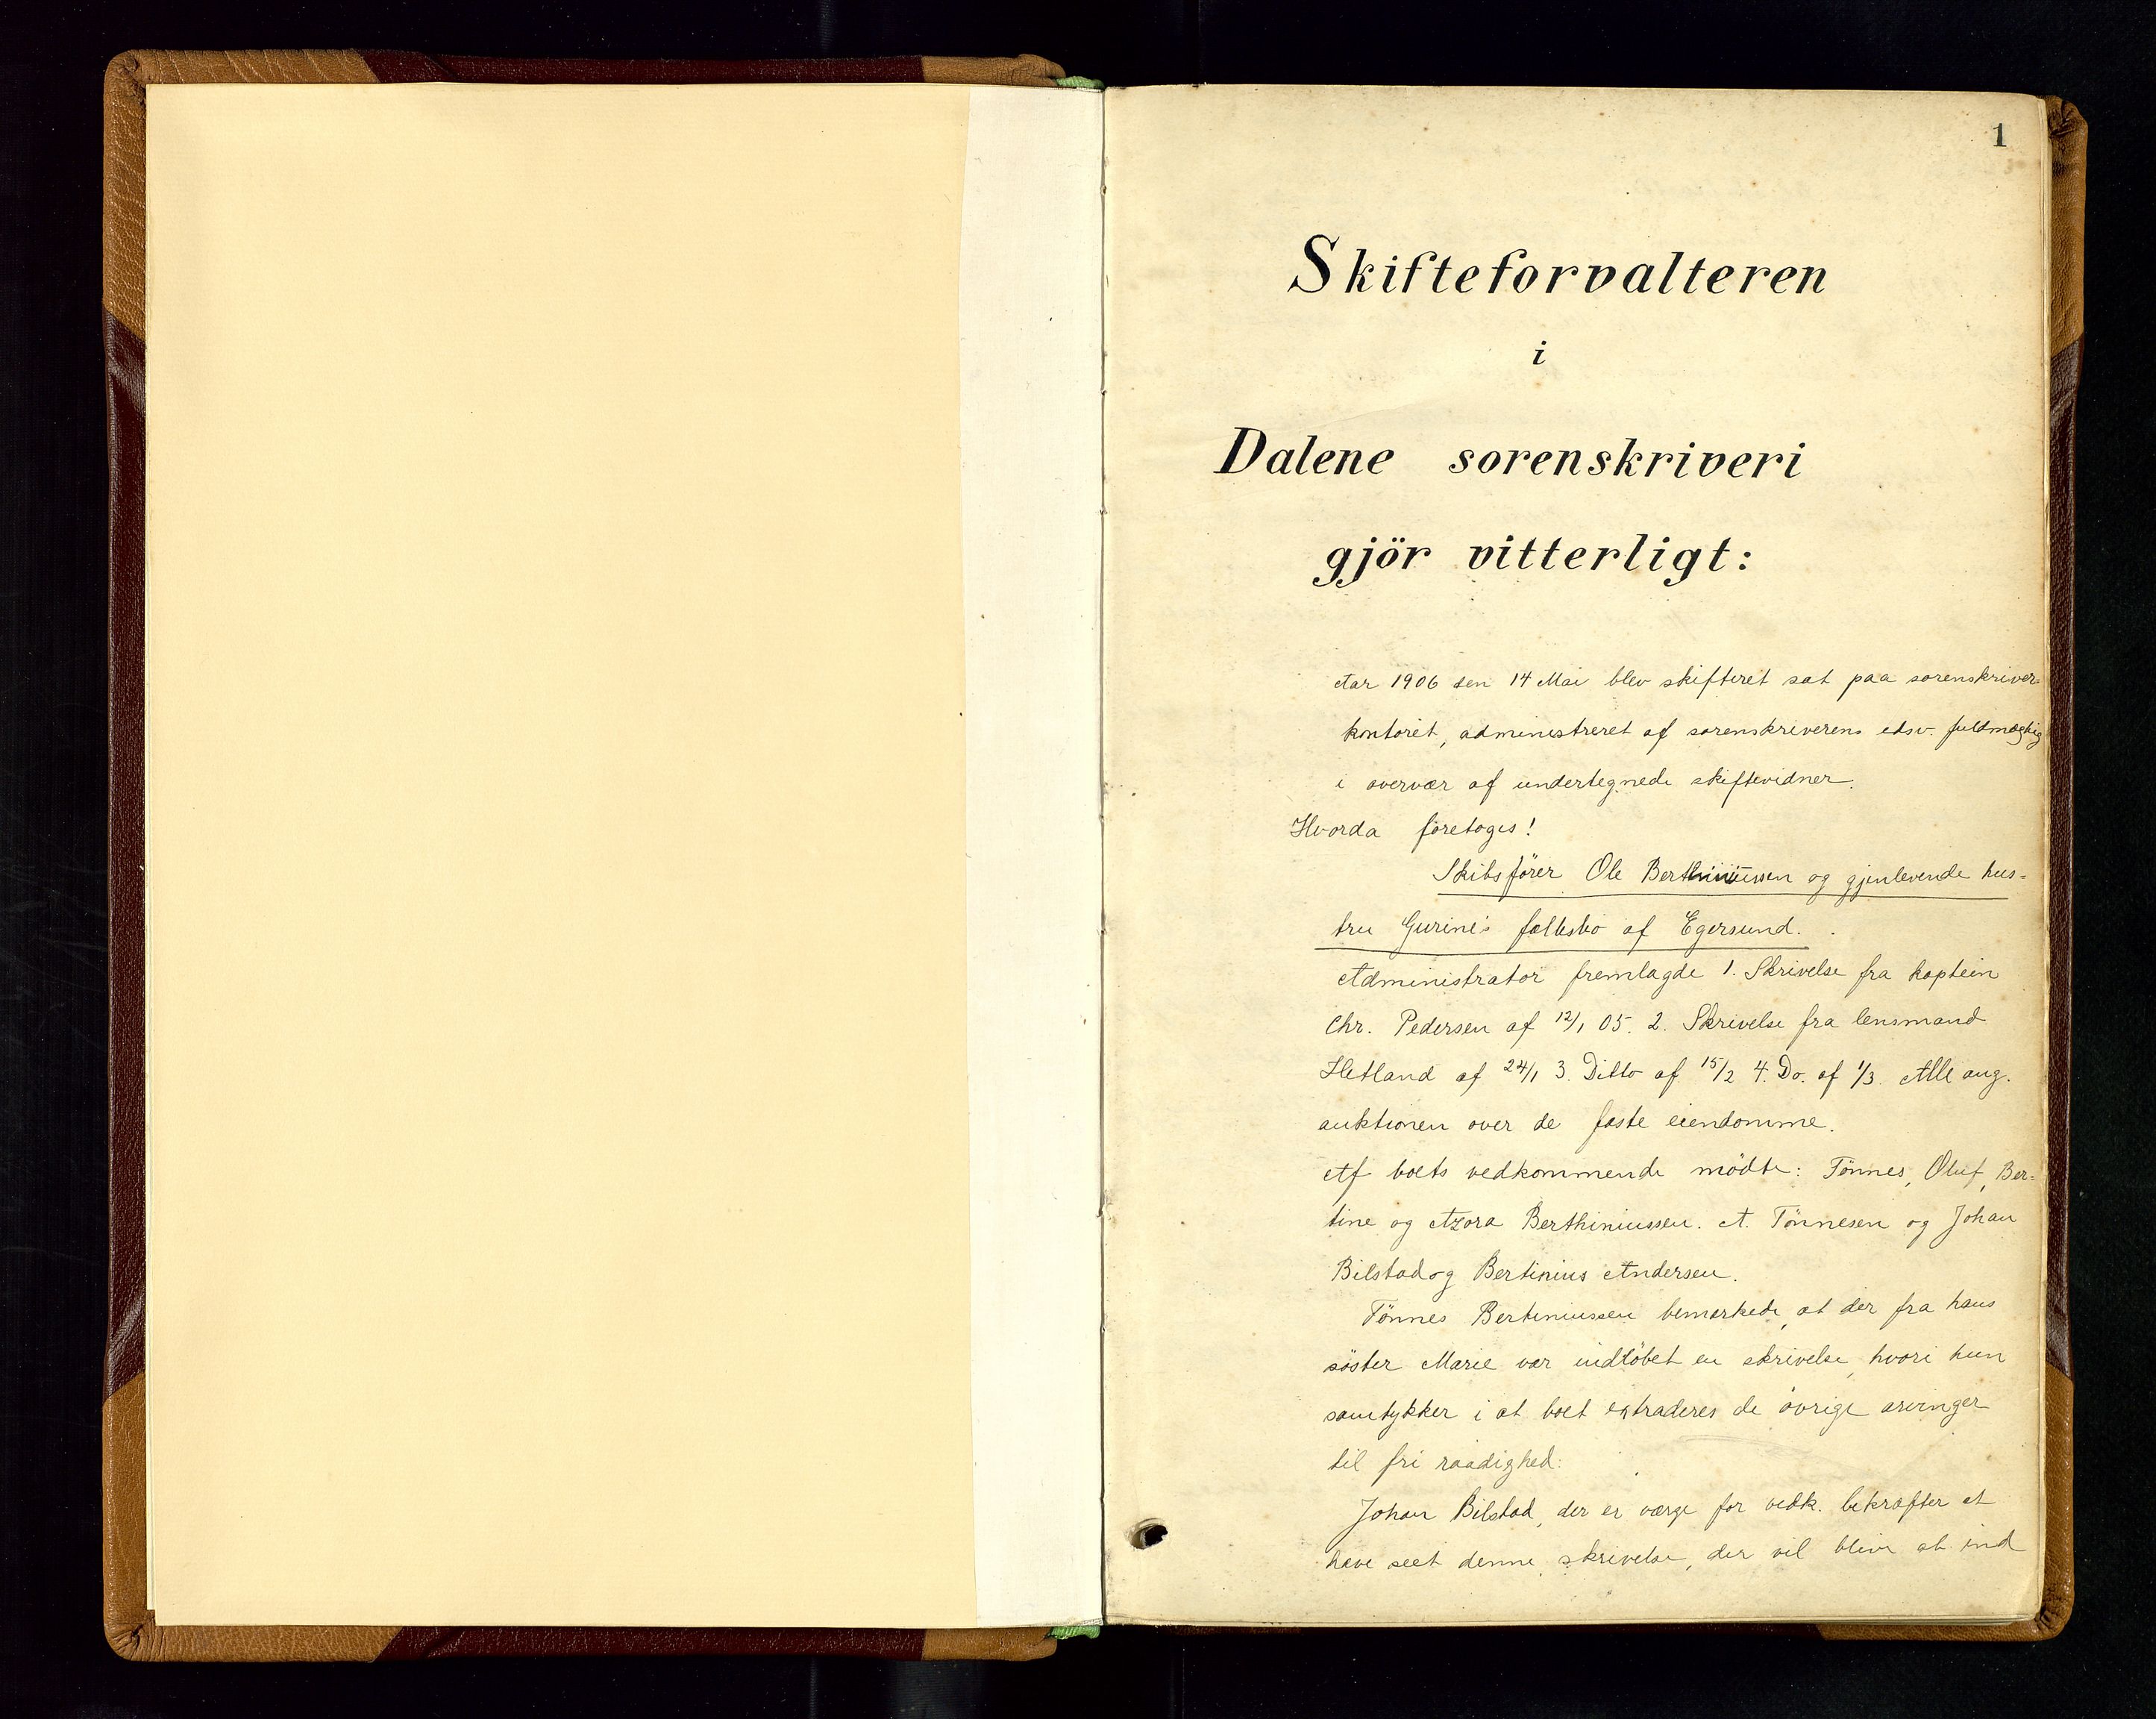 1
Skifteforvalteren
i
Dalene sorenskriveri
gjör vitterligt:
Aar 1906 den 14 Mai blev skifteret sat paa sorenskriver-
kontoret, administreret af sorenskriverens edsv. fuldmægtig
i overvær af undertegnede skiftevidner.
Hvorda foretoges!
Skibsfører Ole Berthiniussen og gjenlevende hus-
tru Gurine's fællesbo af Egersund.
Administrator fremlagde 1. Skrivelse fra kaptein
Chr. Pedersen af 12/1 05. 2. Skrivelse fra lensmand
Hetland af 24/1 3. Ditto af 15/2 4. Do. af 1/3. Alle ang.
auktionen over de faste eiendomme.
Af boets vedkommende mödte: Tönnes, Oluf, Ber-
tine og Azora Berthiniussen. A. Tönnesen og Johan
Bilstad og Bertinius Andersen.
Tönnes Bertiniussen bemærkede, at der fra hans
söster Marie var indløbet en skrivelse, hvori hun
samtykker i at boet extraderes de övrige arvinger
til fri raadighed.
Johan Bilstad, der er værge for vedk. bekræfter at
have seet denne skrivelse, der vil blive at ind